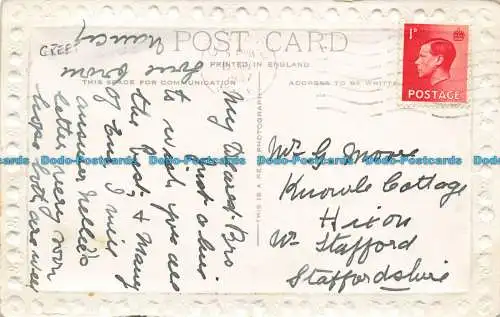 POST CARD
PRINTED IN ENGLAND
THIS SPACE FOR COMMUNICATION
ADDRESS TO BE WRITTEN
THIS IS A REAL PHOTOGRAPH
1D
POSTAGE
GREET
My Dearest Bro
Just a line
to wish you all
the best, & Many
of Em. I will
answer Nellie's
letter very soon
hope both are well
love from
Nancy
Mr G Moore
Knowle Cottage
Hixon
Nr Stafford
Staffordshire
Dodo-Postcards Dodo-Postcards Dodo-Postcards Dodo-Postcards
Dodo-Postcards Dodo-Postcards Dodo-Postcards Dodo-Postcards